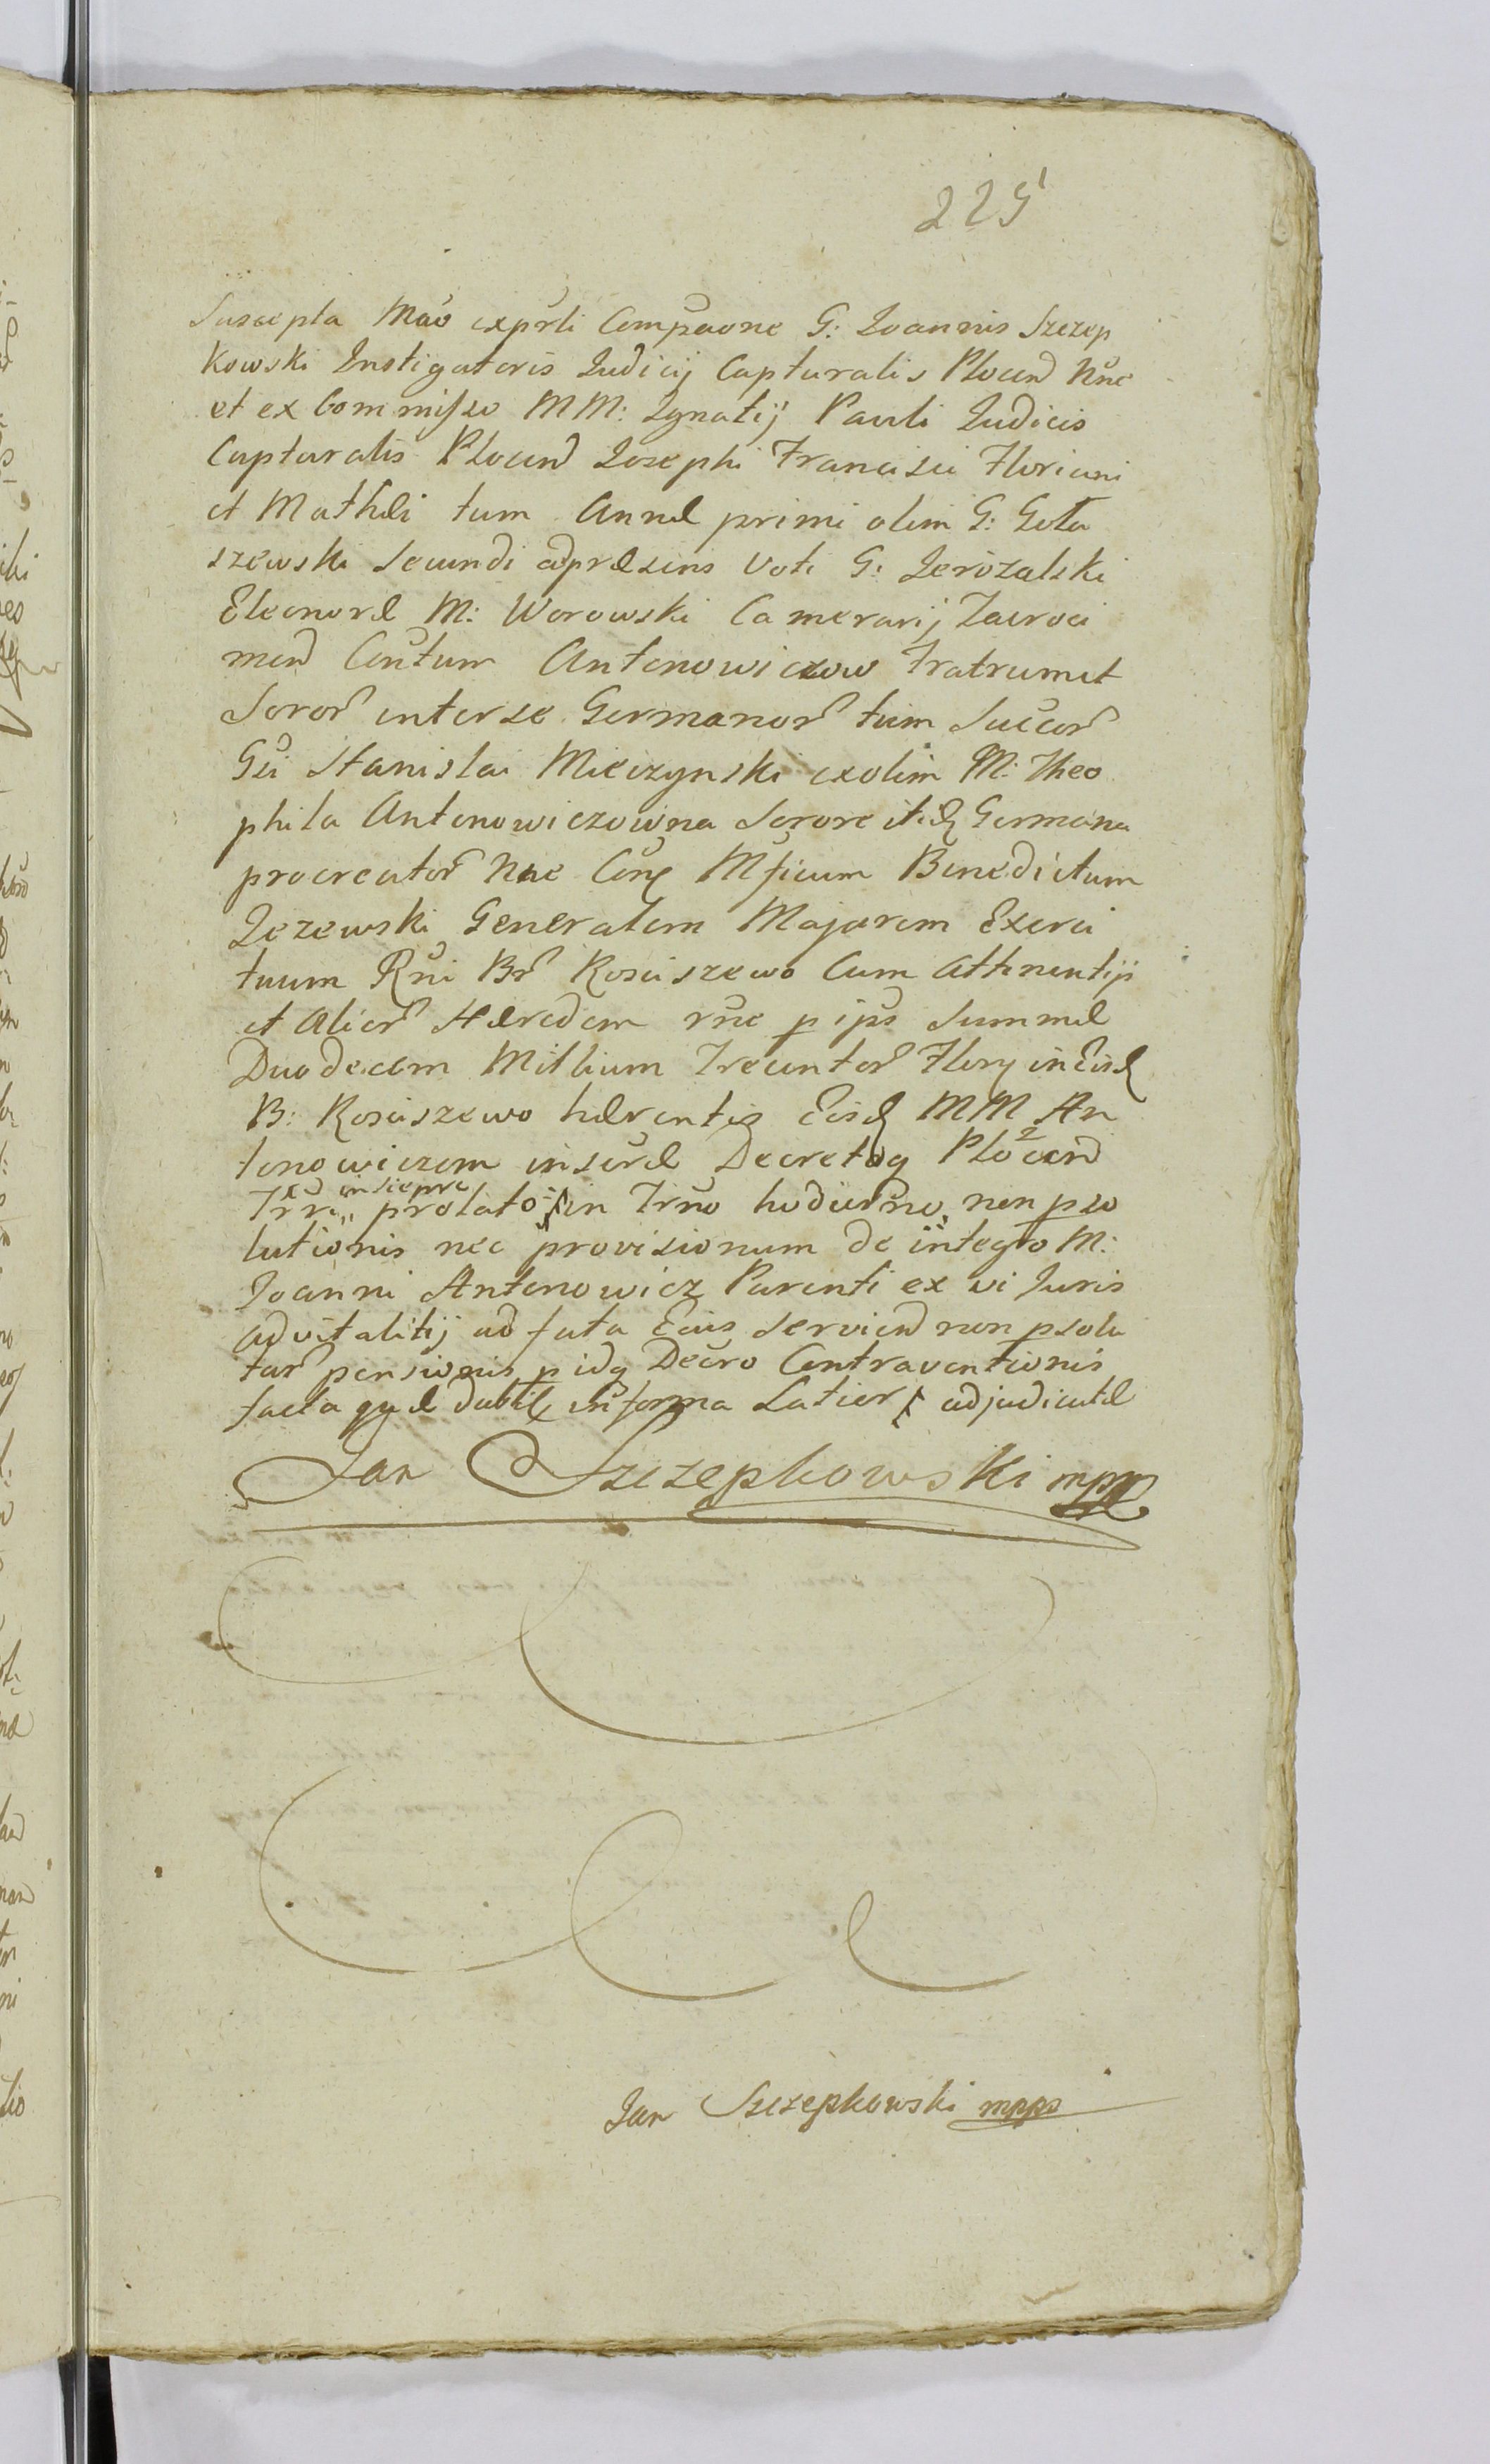 225
Suscepta Mão exprli Compaone G: Joannis Szczep
kowski Instigatoris Judicij Capturalis Plocen Nnc
et ex Commisso MM: Ignatij Pauli Judicis
Capturalis Plocen Josephi Francisci Floriani
et Mathæi tum Annæ primi olim G: Goła
szewski secundi adpræsens voti G: Jerózalski
Eleonoræ M: Worowski Camerarij Zacroci
men Centum Antonowiczow Fratrum et
Soror inter se Germanor tum Succor
Gsi Stanislai Mieczynski exolim M: Theo
phila Antonowiczowna Sorore itid Germana
procreator Nne Cong Mficum Benedictum
Jezewski Generalem Majorem Exerci
tuum Rni Br Kosciszewo Cum Attinentijs
et Alior Hæredem rne p ips Summæ
Duodecem Millium Trecentor Flor in Eisd
B: Kosciszewo hærentis Eisd MM An
tonowiczom inserè Decretoq Plo2cen
Trr prolato in Trno hodierno, non pso
lutionis nec provisionum de integro M:
Joanni Antonowicz Parenti ex vi Juris
advitalitij ad fata Eius servien non psolu
tar pensionis p idq Decro Contraventionis
facta qq æ dubil informa Latior adjudicatæ
Jan Szczepkowski mpp
Jan Szczepkowski mpp